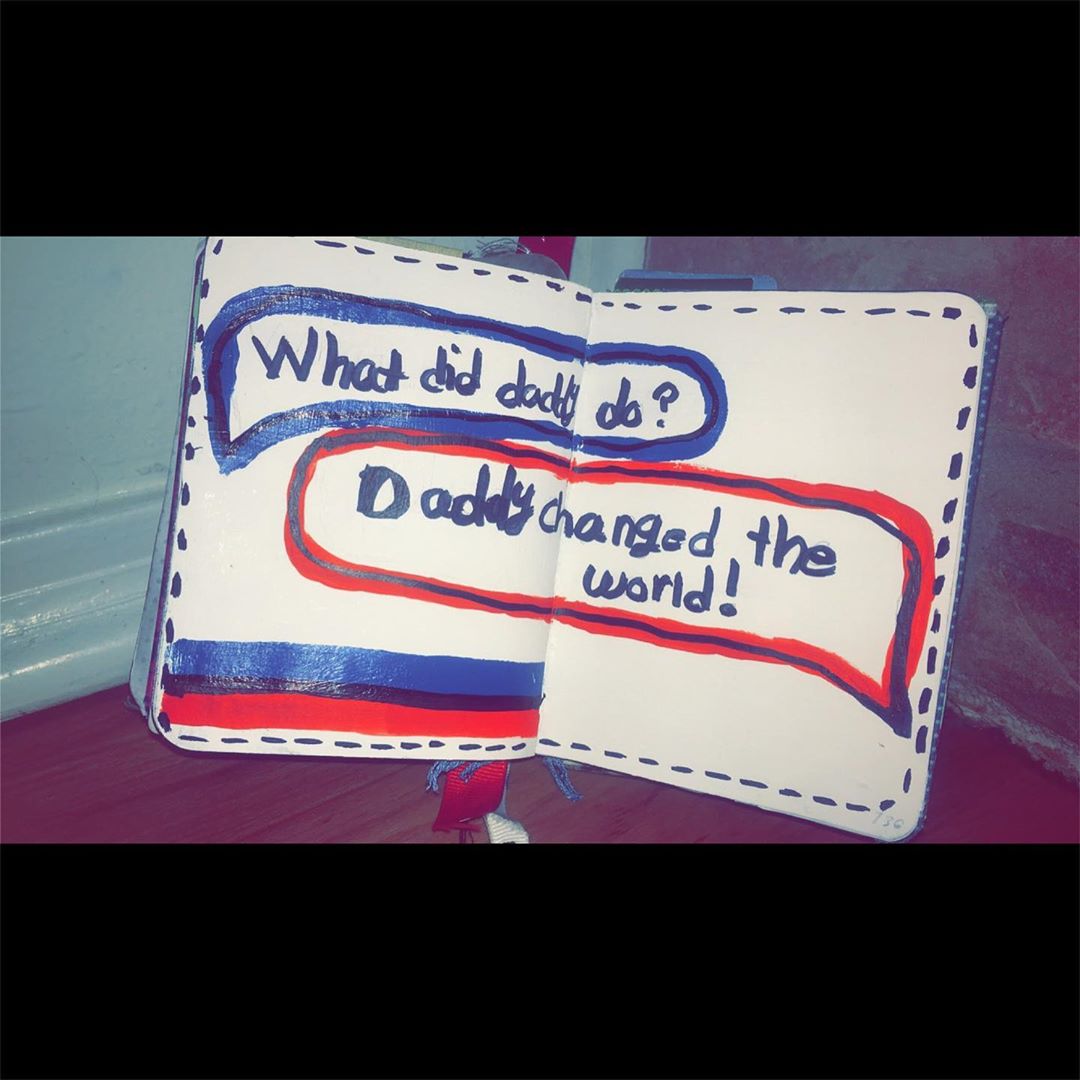 What did daddy do?
Daddy changed the
world!
136